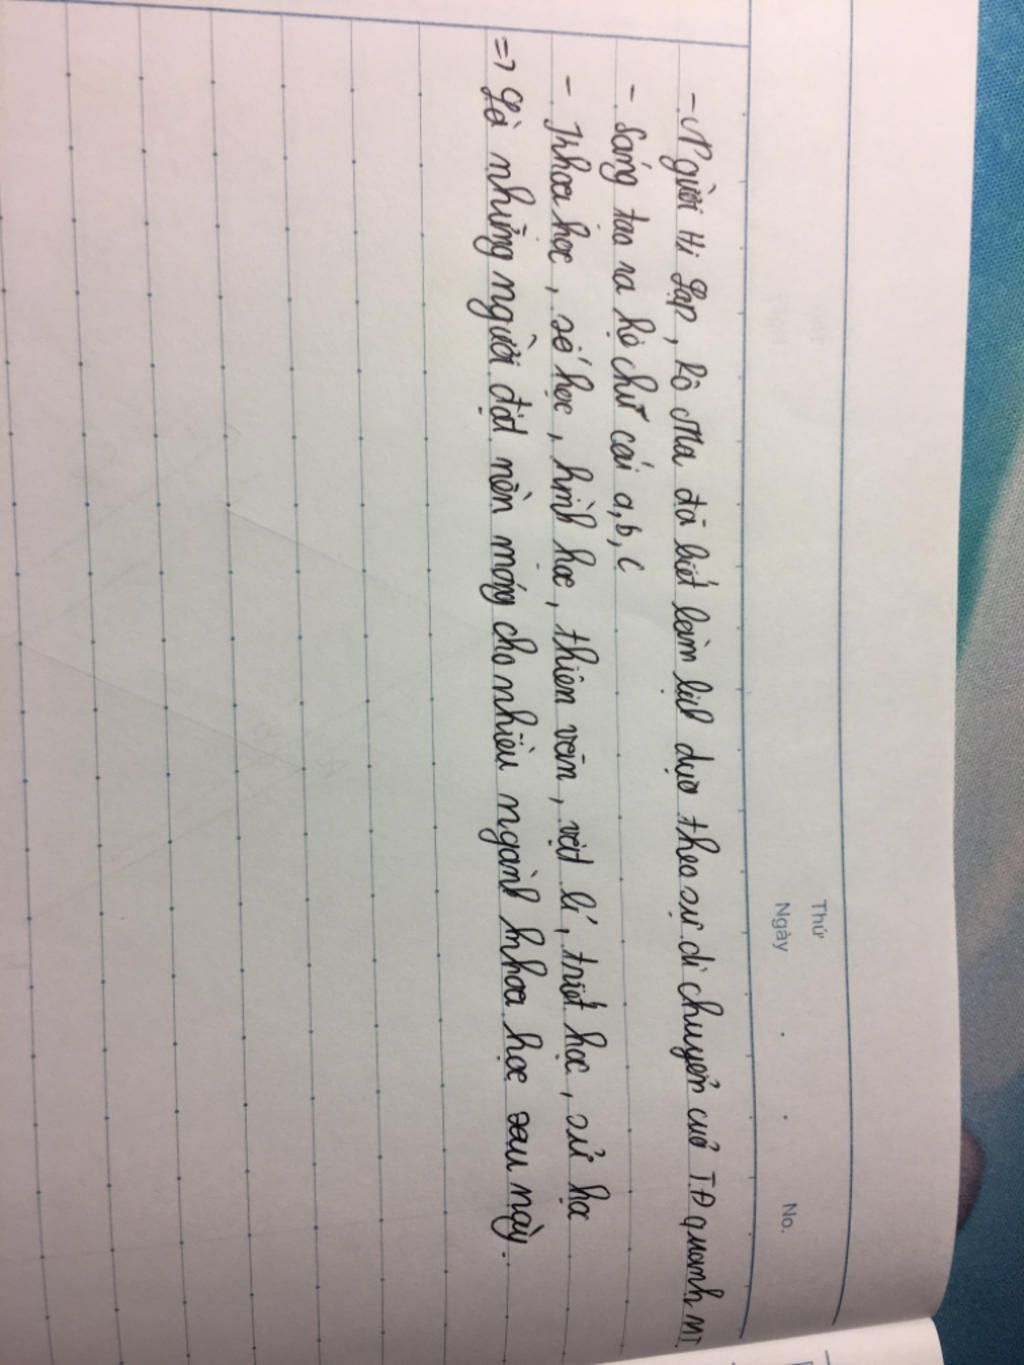 Thứ
Ngày . . No.
- Người Hi Lạp, Rô Ma đã biết làm lịch dựa theo sự di chuyển cuả T.Đ quanh MT
- Sáng tạo ra hệ chữ cái a, b, c
- Khoa học, số học, hình học, thiên văn, vật lí, triết học, sử học
=> Là những người đặt nền móng cho nhiều ngành khoa học sau này.